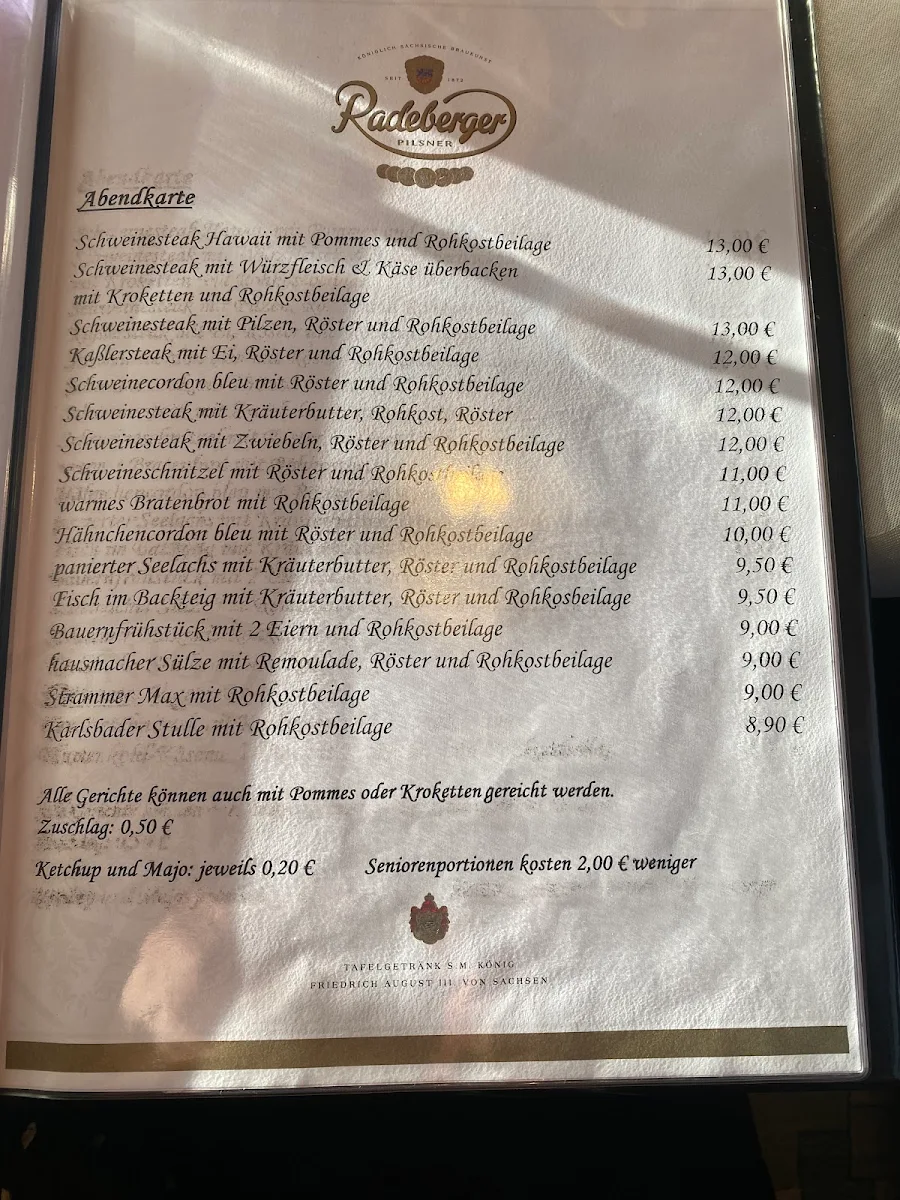 KÖNIGLICH SÄCHSISCHE BRAUKUNST
SEIT 1872
Radeberger
PILSNER
Abendkarte
Schweinesteak Hawaii mit Pommes und Rohkostbeilage 13,00 €
Schweinesteak mit Würzfleisch & Käse überbacken 13,00 €
mit Kroketten und Rohkostbeilage
Schweinesteak mit Pilzen, Röster und Rohkostbeilage 13,00 €
Kaßlersteak mit Ei, Röster und Rohkostbeilage 12,00 €
Schweinecordon bleu mit Röster und Rohkostbeilage 12,00 €
Schweinesteak mit Kräuterbutter, Rohkost, Röster 12,00 €
Schweinesteak mit Zwiebeln, Röster und Rohkostbeilage 12,00 €
Schweineschnitzel mit Röster und Rohkostbeilage 11,00 €
warmes Bratenbrot mit Rohkostbeilage 11,00 €
Hähnchencordon bleu mit Röster und Rohkostbeilage 10,00 €
panierter Seelachs mit Kräuterbutter, Röster und Rohkostbeilage 9,50 €
Fisch im Backteig mit Kräuterbutter, Röster und Rohkosbeilage 9,50 €
Bauernfrühstück mit 2 Eiern und Rohkostbeilage 9,00 €
hausmacher Sülze mit Remoulade, Röster und Rohkostbeilage 9,00 €
Strammer Max mit Rohkostbeilage 9,00 €
Karlsbader Stulle mit Rohkostbeilage 8,90 €
Alle Gerichte können auch mit Pommes oder Kroketten gereicht werden.
Zuschlag: 0,50 €
Ketchup und Majo: jeweils 0,20 € Seniorenportionen kosten 2,00 € weniger
TAFELGETRÄNK S.M. KÖNIG
FRIEDRICH AUGUST III. VON SACHSEN